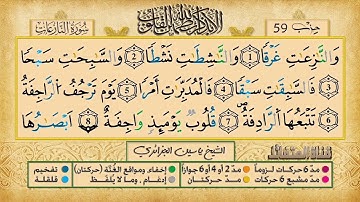 سورة النازعات
حزب 59
وَالنَّٰزِعَٰتِ غَرْقًا 1 وَالنَّٰشِطَٰتِ نَشْطًا 2 وَالسَّٰبِحَٰتِ سَبْحًا
3 فَالسَّٰبِقَٰتِ سَبْقًا 4 فَالْمُدَبِّرَٰتِ أَمْرًا 5 يَوْمَ تَرْجُفُ الرَّاجِفَةُ
6 تَتْبَعُهَا الرَّادِفَةُ 7 قُلُوبٌ يَوْمَئِذٍ وَاجِفَةٌ 8 أَبْصَٰرُهَا
الشيخ ياسين الجزائري
مدّ 6 حركات لزوماً مدّ 2 أو 4 أو 6 جوازاً إخفاء، ومواقع الغُنَّة (حركتان) تفخيم
مدّ مشبع 6 حركات مدّ حركتان إدغام، وما لا يُلفَظ قلقلة